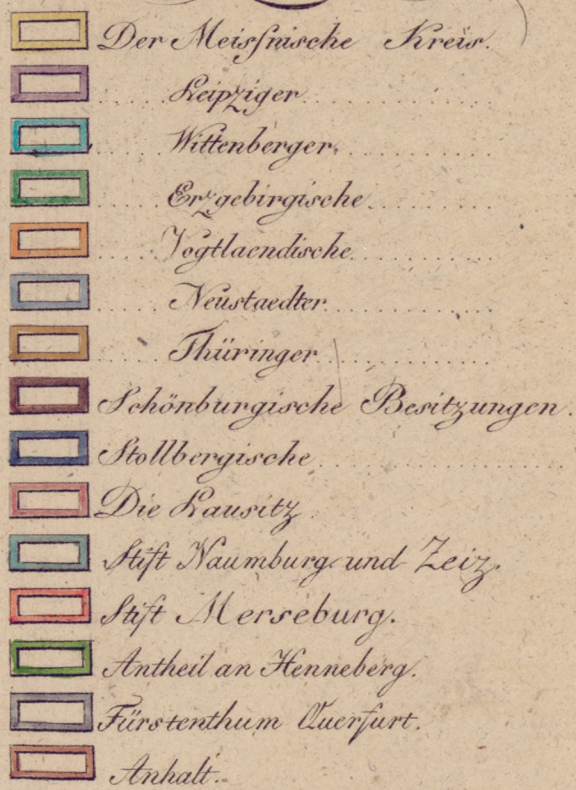 Der Meissnische Kreis.
Leipziger
Wittenberger
Erzgebirgische
Vogtlaendische
Neustaedter
Thüringer
Schönburgische Besitzungen.
Stollbergische
Die Lausitz
Stift Naumburg und Zeiz.
Stift Merseburg.
Antheil an Henneberg.
Fürstenthum Querfurt.
Anhalt.